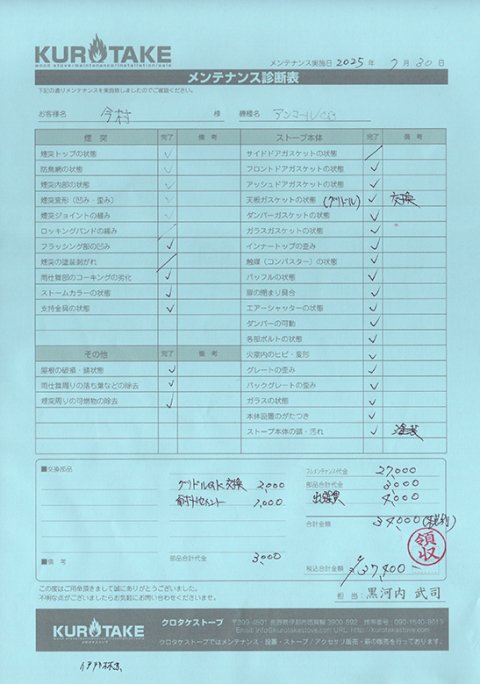 KUROTAKE
wood stove/maintenance/installation/sale
メンテナンス実施日 2025 年 7 月 30 日
メンテナンス診断表
下記の通りメンテナンスを実施致しましたのでご確認ください。
お客様名 今村 様 機種名 アンコール
煙 突 完了 備 考
煙突トップの状態
防鳥網の状態
煙突内部の状態
煙突変形（凹み・歪み）
煙突ジョイントの緩み
ロッキングバンドの緩み
フラッシング部の凹み
煙突の塗装剥がれ
雨仕舞部のコーキングの劣化
ストームカラーの状態
支持金具の状態
その他 完了 備 考
屋根の破損・錆状態
雨仕舞周りの落ち葉などの除去
煙突周りの可燃物の除去
ストーブ本体 完了 備 考
サイドドアガスケットの状態
フロントドアガスケットの状態
アッシュドアガスケットの状態
天板ガスケットの状態 (グリドル) 交換
ダンパーガスケットの状態
ガラスガスケットの状態
インナートップの歪み
触媒（コンバスター）の状態
バッフルの状態
扉の閉まり具合
エアーシャッターの状態
ダンパーの可動
各部ボルトの状態
火室内のヒビ・変形
グレートの歪み
バックグレートの歪み
ガラスの状態
本体設置のがたつき
ストーブ本体の錆・汚れ 塗装
■交換部品
グリドルGK交換 2,000
セメント 1,000
部品合計代金 3,000
■備 考
フルメンテナンス代金 27,000
部品合計代金 3,000
出張費 4,000
合計金額 34,000 (税別)
領収
税込合計金額 ¥37,400
この度はご用命頂きまして誠にありがとうございました。
不明な点がございましたらお気軽にお問い合わせくださいませ。
担 当：黒河内 武司
KUROTAKE
クロタケストーブ
クロタケストーブではメンテナンス・設置・ストーブ / アクセサリ販売・薪の販売を行っております。